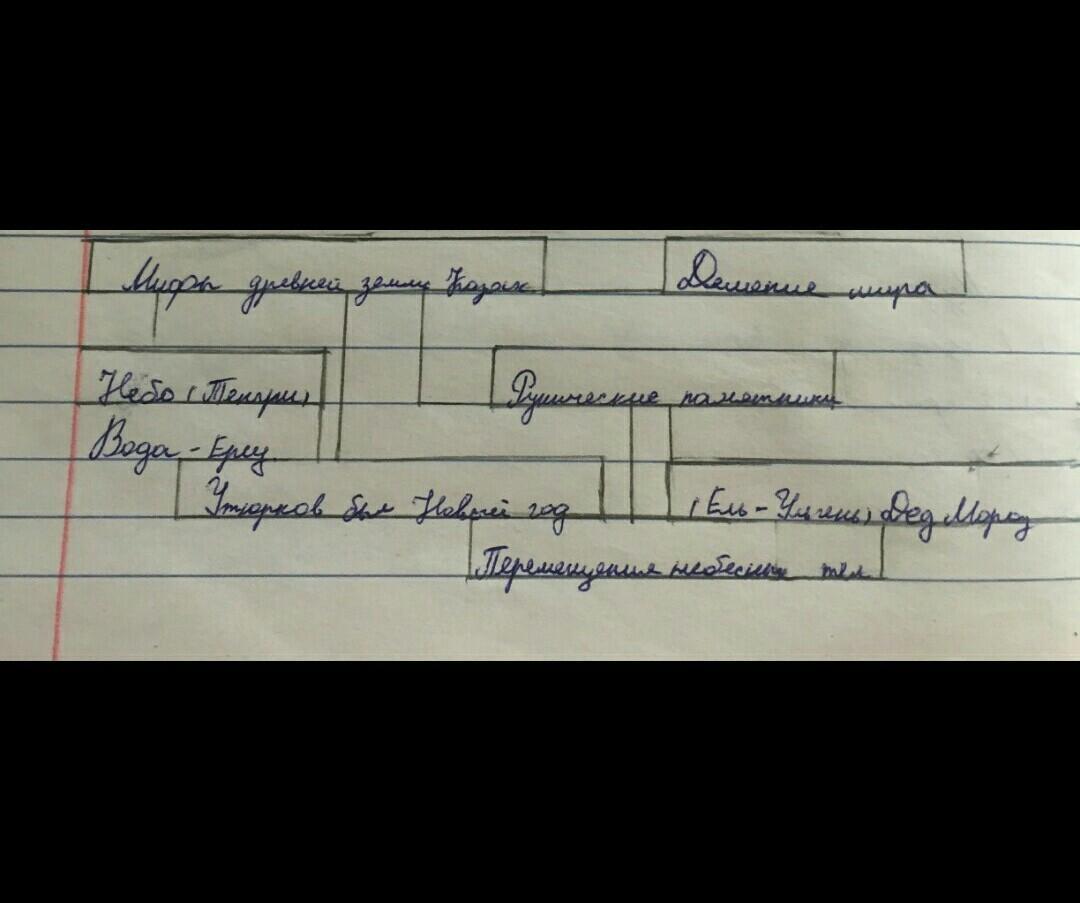 Мифы древней земли Казах
Деление мира
Небо (Тенгри)
Рунические памятники
Вода - Ерсу
Утюрков был Новый год
(Ель - Ульгень) Дед Мороз
Перемещения небесных тел